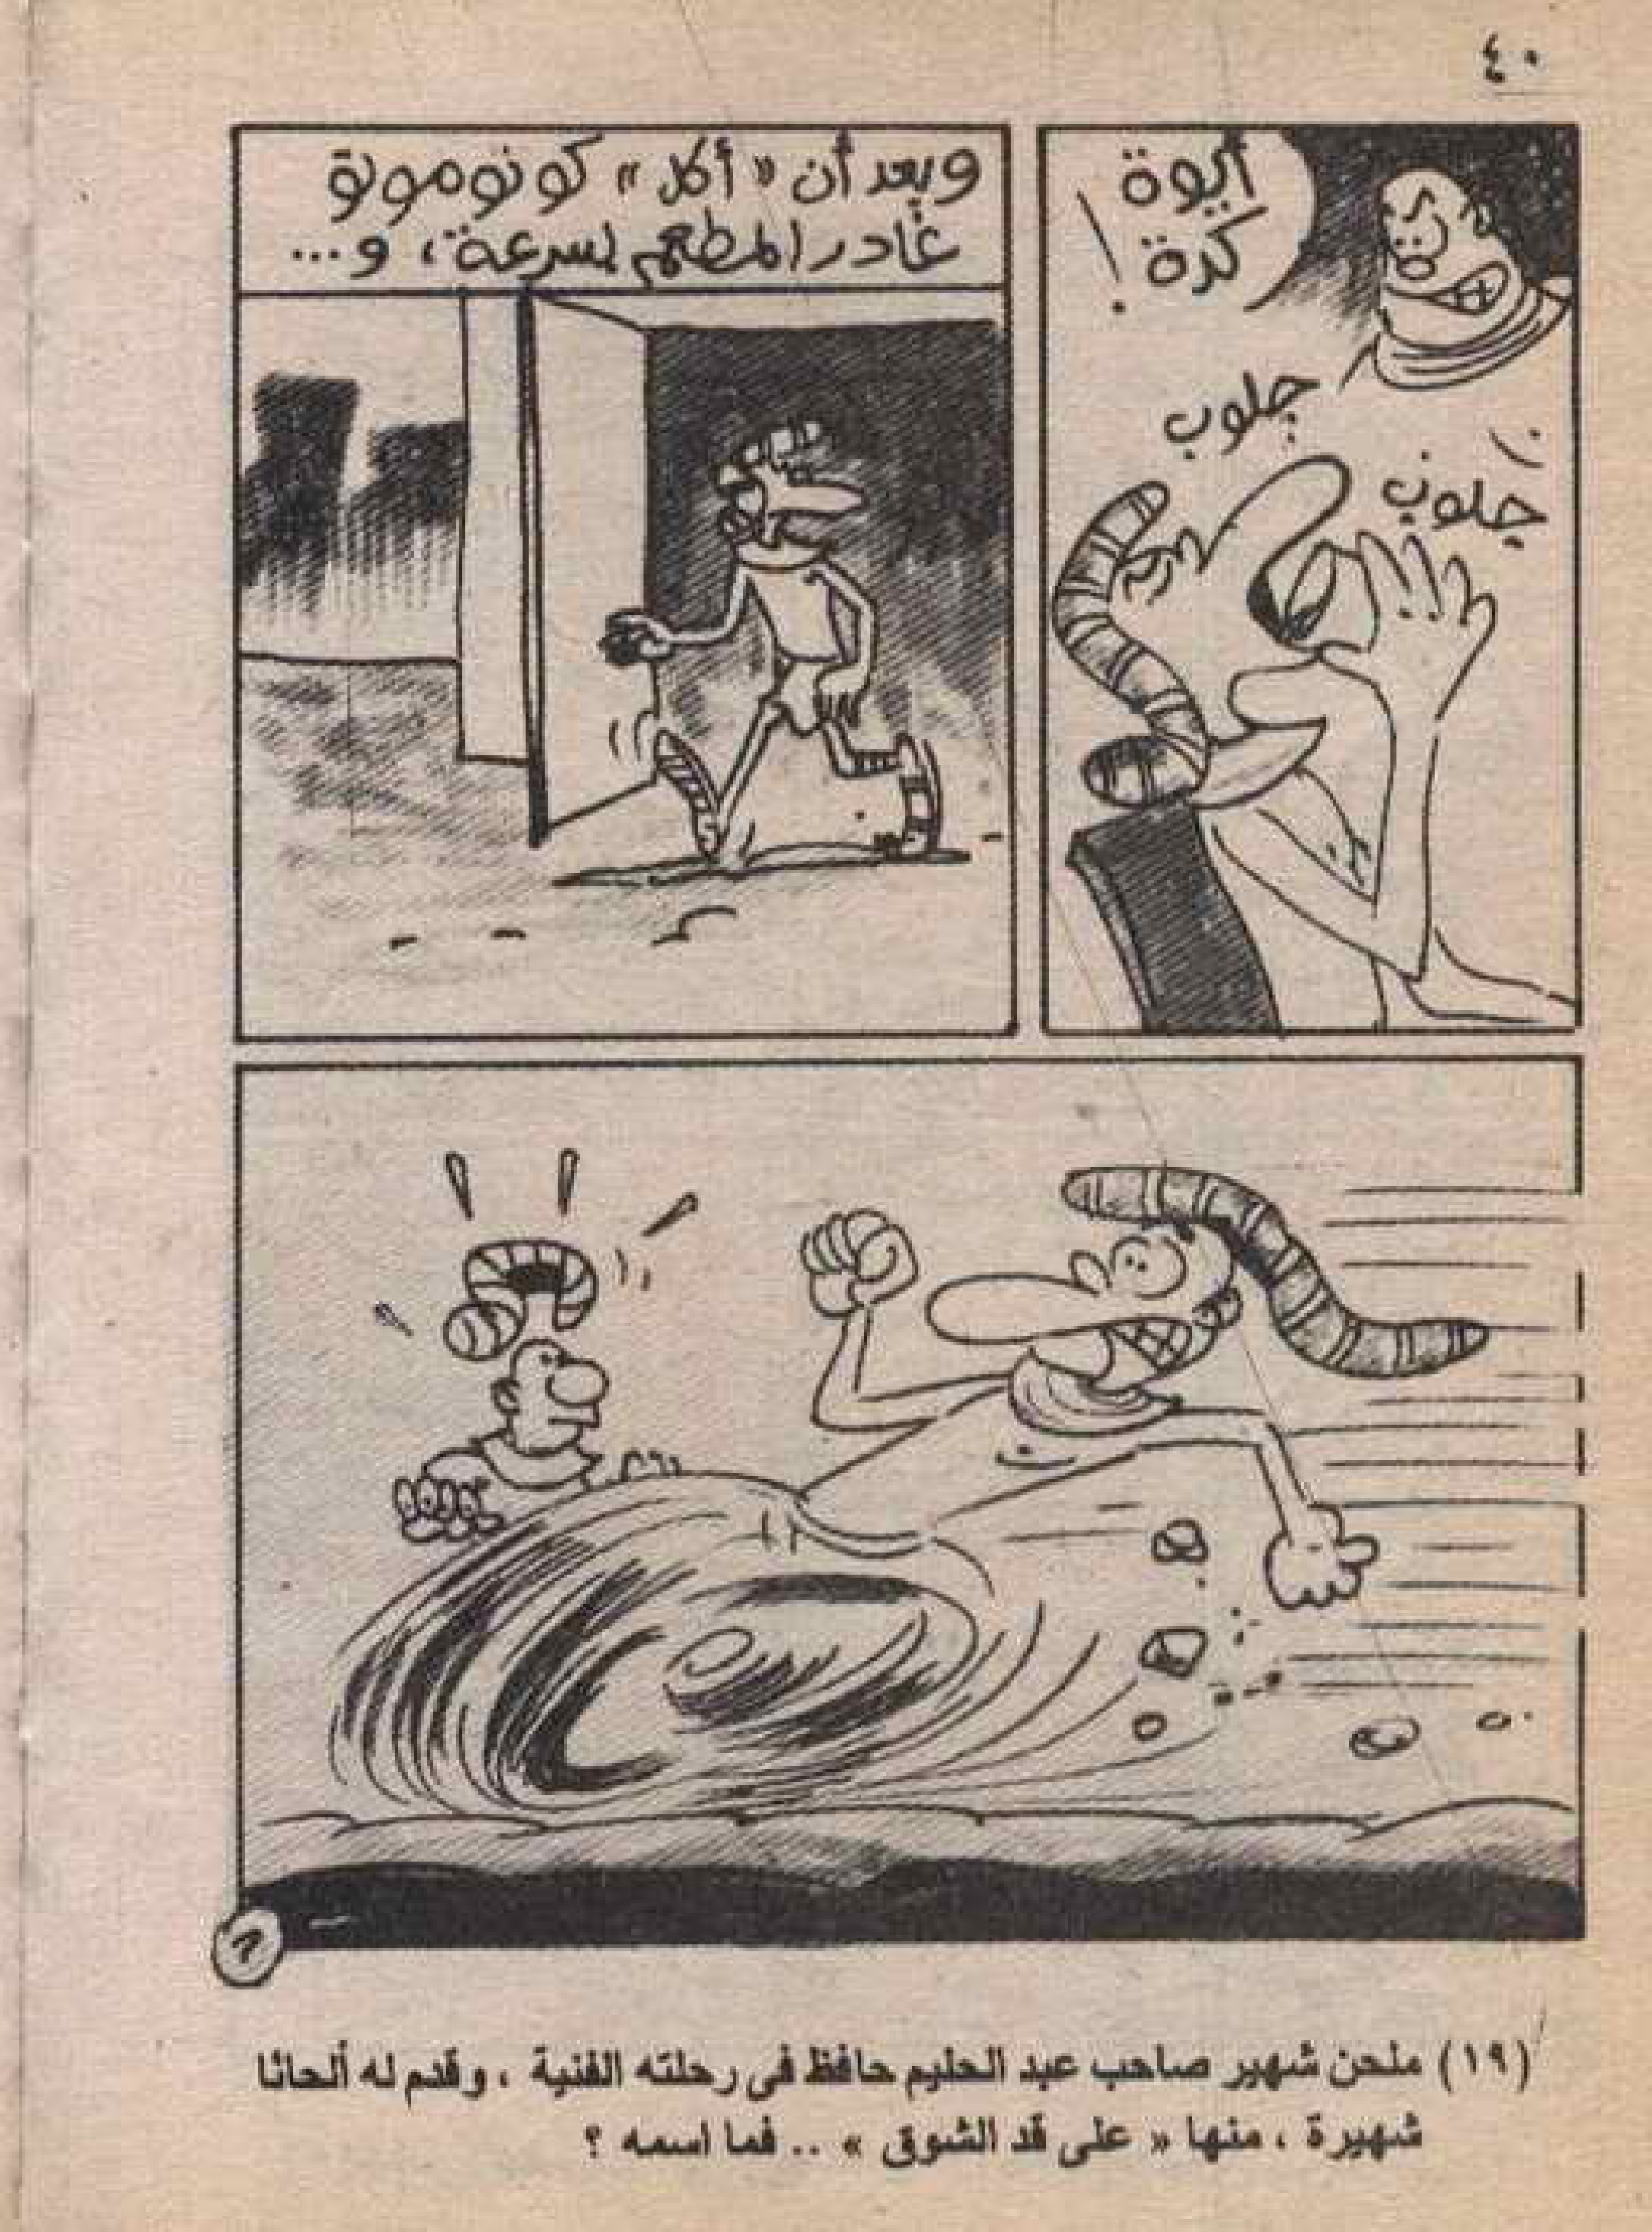 ٤٠
أيوة
كدة !
جلوب
جلوب
وبعد أن « أكل » كونومونو
غادر المطعم بسرعة ، و...
(١٩) ملحن شهير صاحب عبد الحليم حافظ فى رحلته الفنية ، وقدم له ألحانا
شهيرة ، منها « على قد الشوق » .. فما اسمه ؟